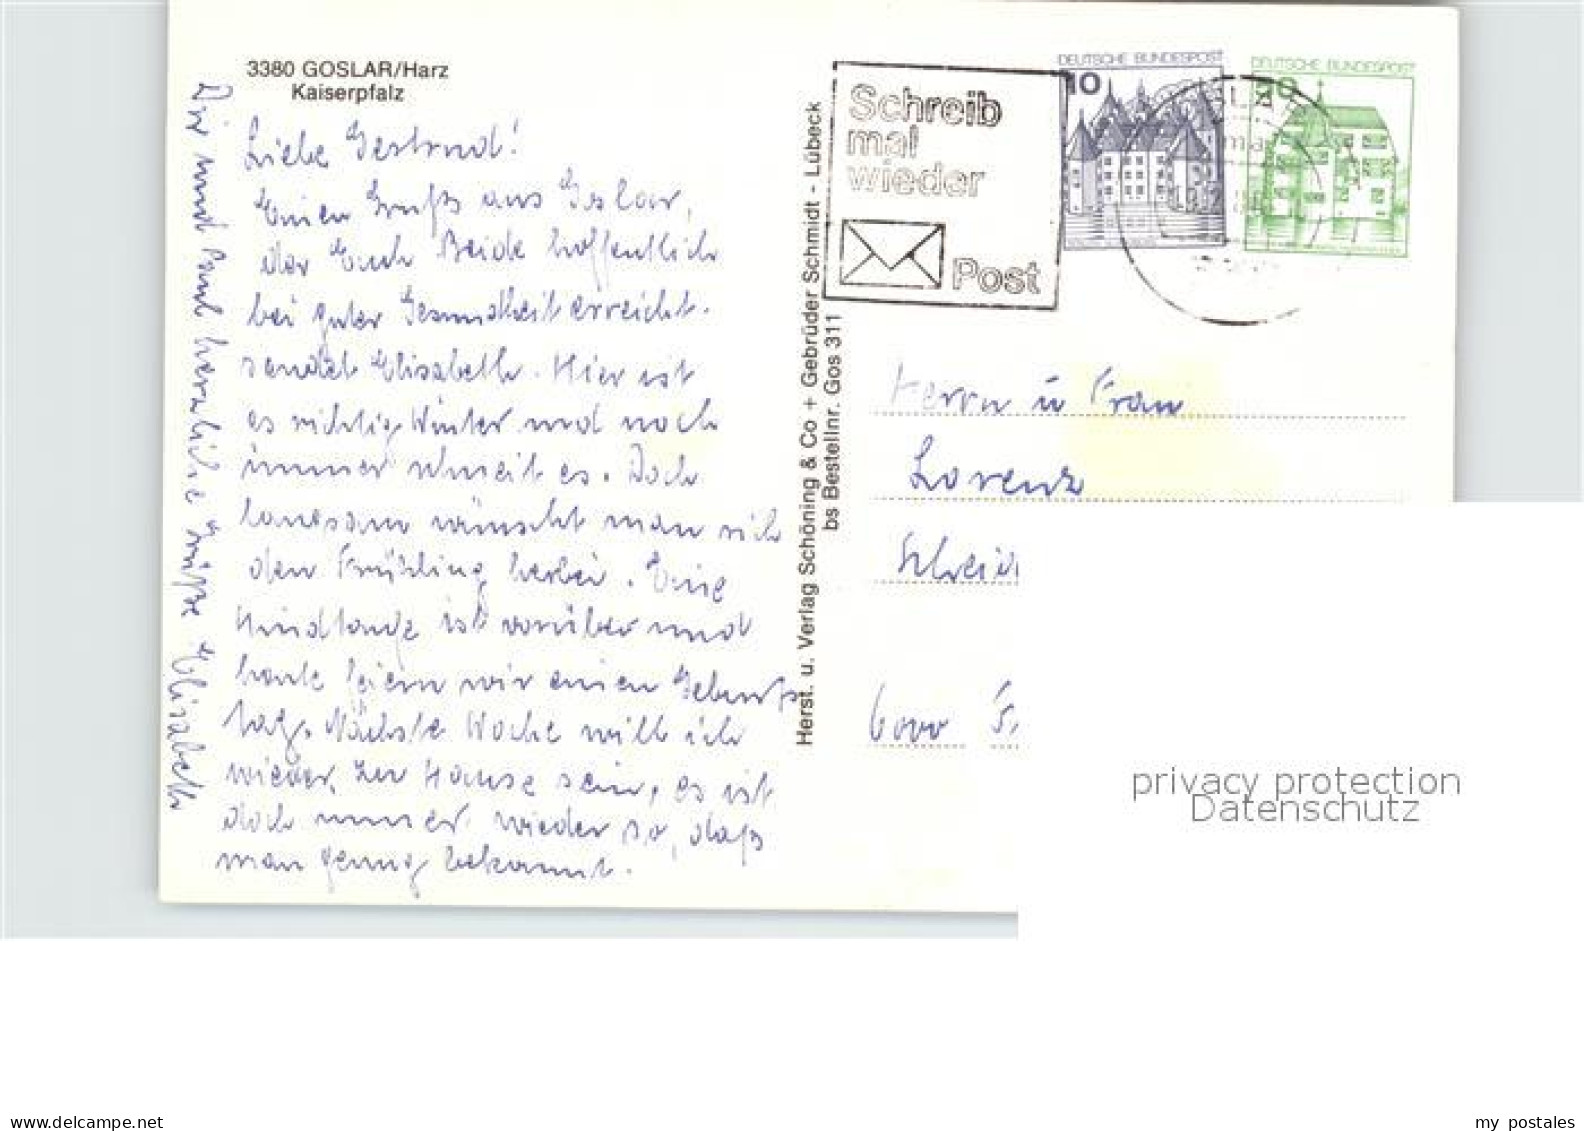 3380 GOSLAR/Harz
Kaiserpfalz
Liebe Gertrud!
Einen Gruß aus Goslar,
der Euch Beide hoffentlich
bei guter Gesundheit erreicht.
sendet Elisabeth. Hier ist
es richtig Winter und noch
immer schneit es. Doch
langsam wünscht man sich
den Frühling herbei. Eine
ist vorüber und
heute feiern wir einen Geburts
tag. Nächste Woche will ich
wieder zu Hause sein, es ist
doch immer wieder so, daß
man genug bekommt.
Dir und Paul herzliche Grüße Elisabeth
Herst. u. Verlag Schöning & Co + Gebrüder Schmidt - Lübeck
bs Bestellnr. Gos 311
Schreib
mal
wieder
Post
DEUTSCHE BUNDESPOST
10
DEUTSCHE BUNDESPOST
Herrn u Frau
Lorenz
6000
privacy protection
Datenschutz
www.delcampe.net
my_postales